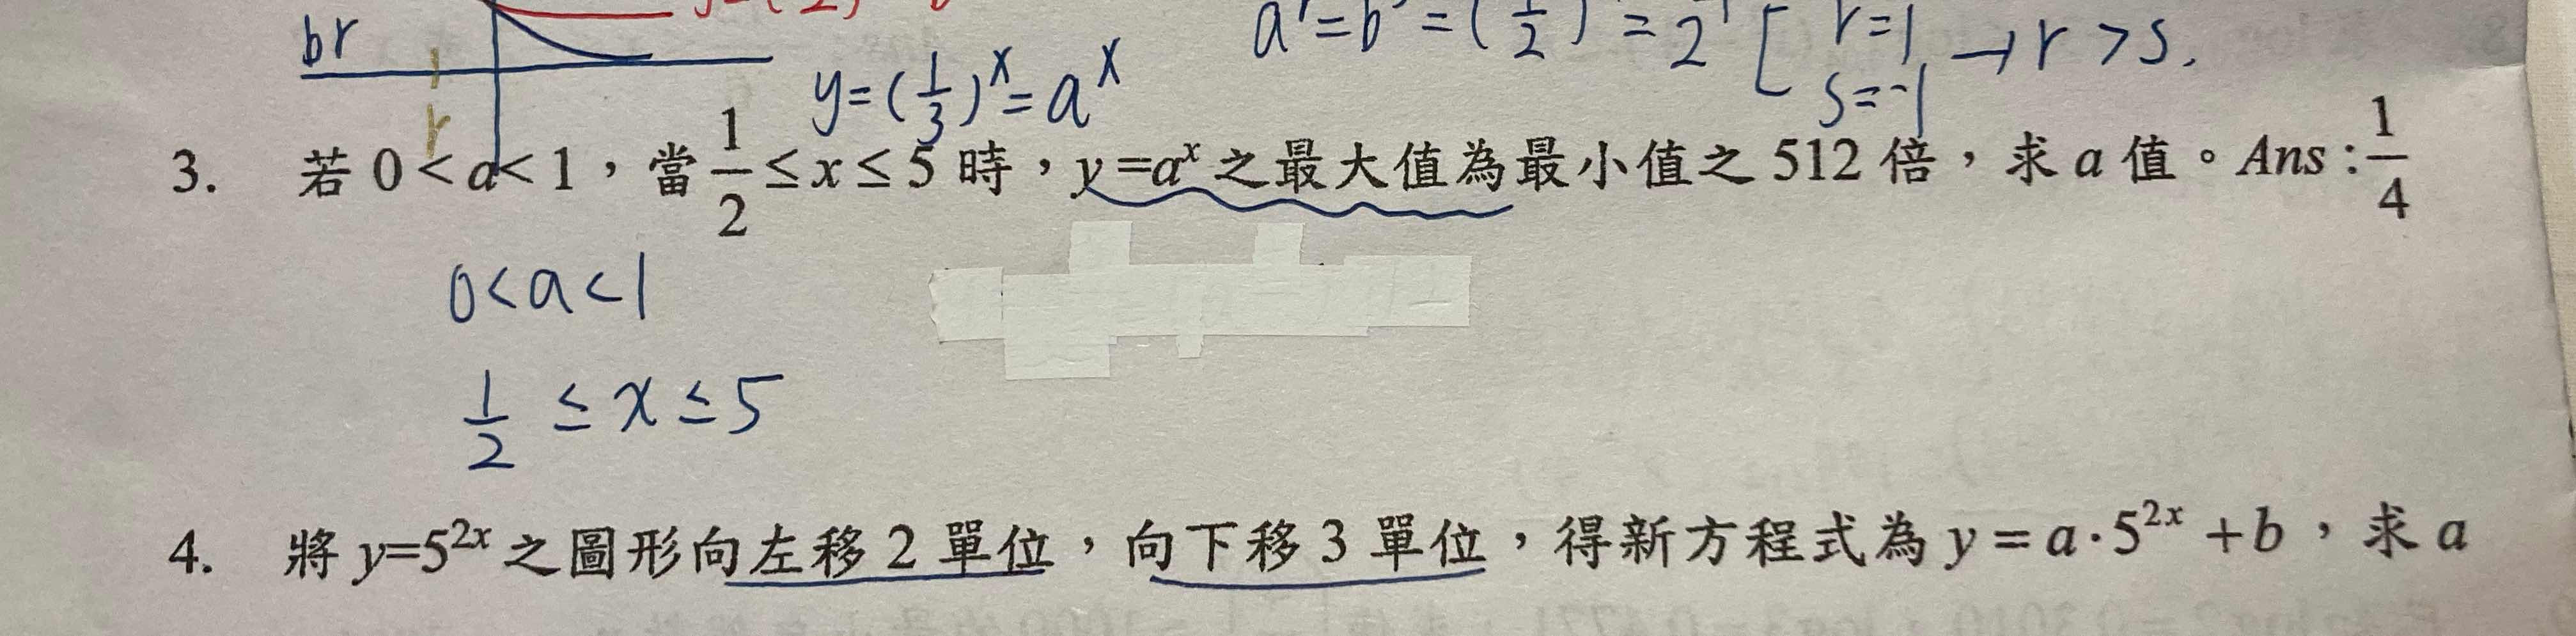 br
a = b = (1/2) = 2 [ r=1 → r > s.
s=-1
y=(1/3)^x = a^x
r
3. 若 0 < a < 1，當 1/2 ≤ x ≤ 5 時，y = a^x 之最大值為最小值之 512 倍，求 a 值。Ans : 1/4
0<a<1
1/2 ≤ x ≤ 5
4. 將 y=5^{2x} 之圖形向左移 2 單位，向下移 3 單位，得新方程式為 y = a·5^{2x} + b，求 a